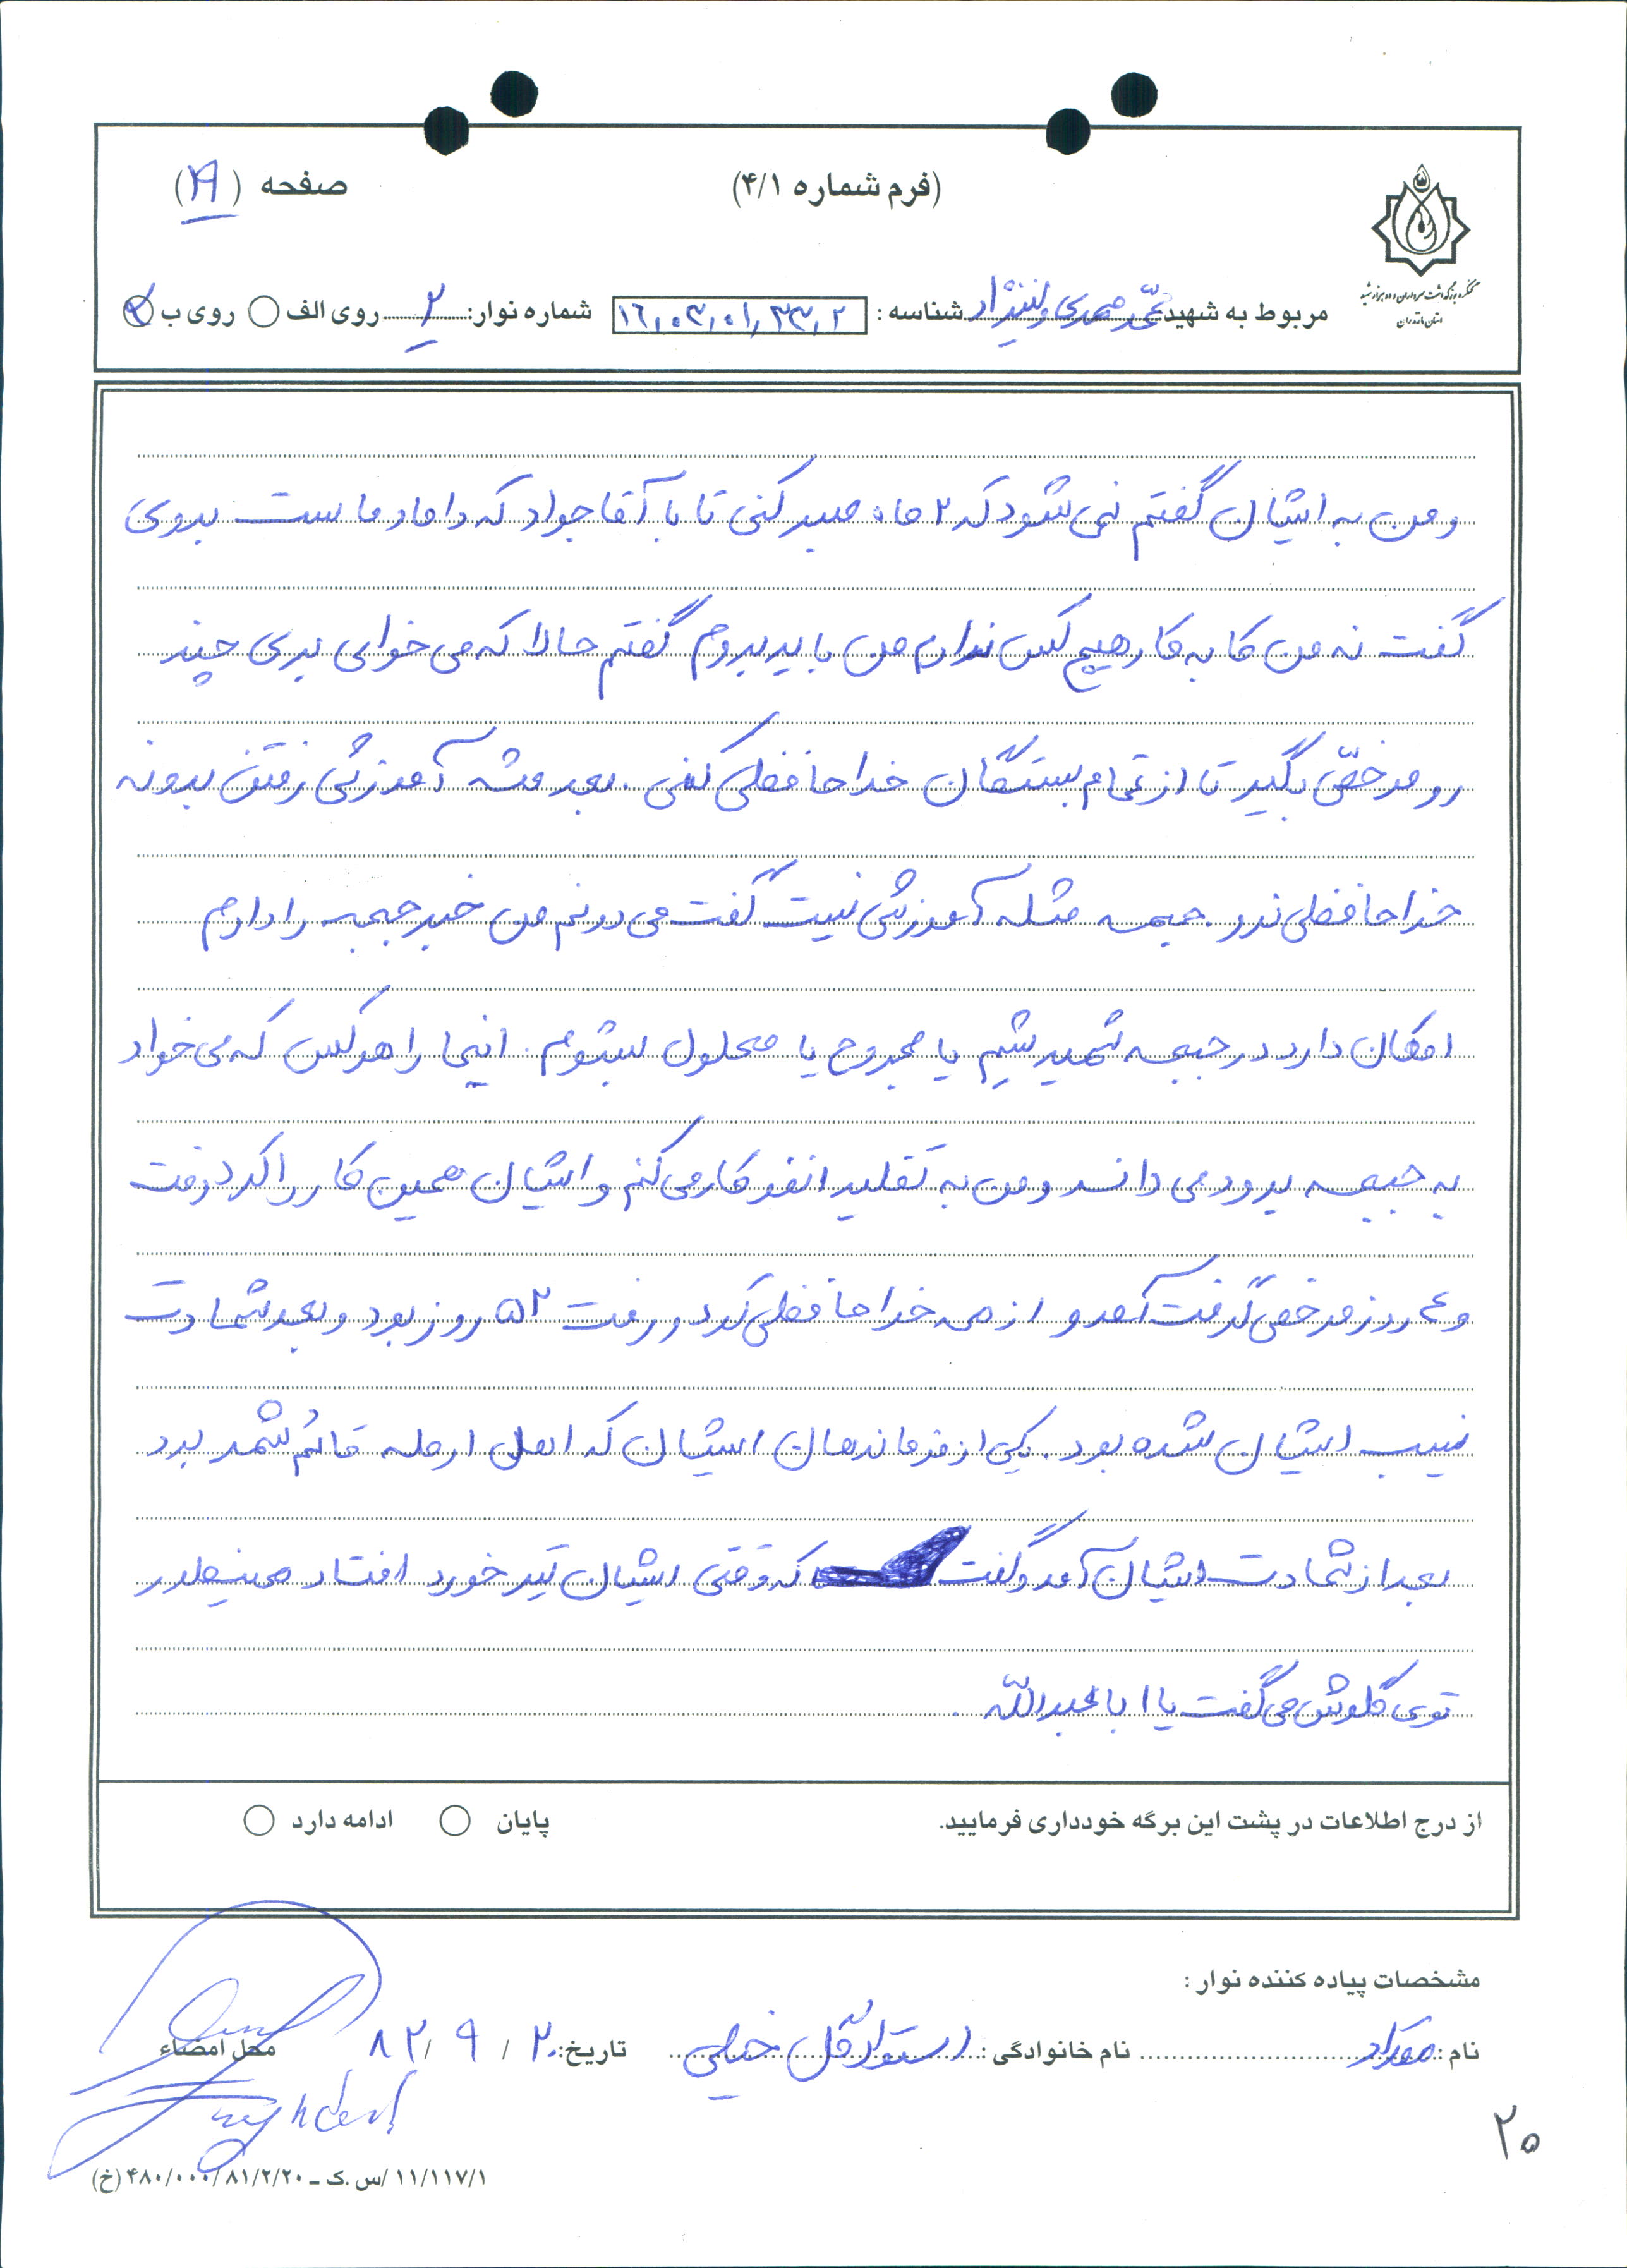 (فرم شماره ۴/۱)
صفحه (۱۹)
کنگره بزرگداشت سرداران و ده هزار شهید
استان مازندران
مربوط به شهید: محمد مهدی شناسه: ۱۶,۰۳,۰۱,۳۳,۲ شماره نوار: ۲ روی الف روی ب
و من به ایشان گفتم نمی شود که ۲ ماه صبر کنی تا با آقا جواد که داماد ماست بروی
گفت نه من کا به کار هیچ کس ندارم من باید بروم گفتم حالا که می خوای بری چند
رو مرخصّی بگیر تا از تمام بستگان خداحافظی کنی. بعد مثه آموزشی رفتن بدونه
خداحافظی نرو. جبهه مثله آموزشی نیست گفت می دونم من خبر جبهه را دارم
امکان دارد در جبهه شهید شیم یا مجروح یا معلول بشوم. اینها را هر کس که می خواد
به جبهه برود می داند و من به تقلید انفر کار می کنم و ایشان همین کار را کرد رفت
و ۴ روز مرخصی گرفت آمد و از من خداحافظی کرد و رفت ۵۲ روز بود و بعد شهادت
نصیب ایشان شده بود. یکی از فرماندهان ایشان که اهل قائم شهر بود
بعد از شهادت ایشان آمد و گفت که وقتی ایشان تیر خورد افتاد همینطور
توی گلوش می گفت یا ابا عبدالله.
از درج اطلاعات در پشت این برگه خودداری فرمایید.
پایان ادامه دارد
مشخصات پیاده کننده نوار:
نام: نام خانوادگی: تاریخ: ۲۰ / ۹ / ۸۲ محل امضاء
۲۰
۱۱/۱۱۷/۱ /س.ک ـ ۴۸۰/۰۰۰/۸۱/۲/۲۰ (خ)